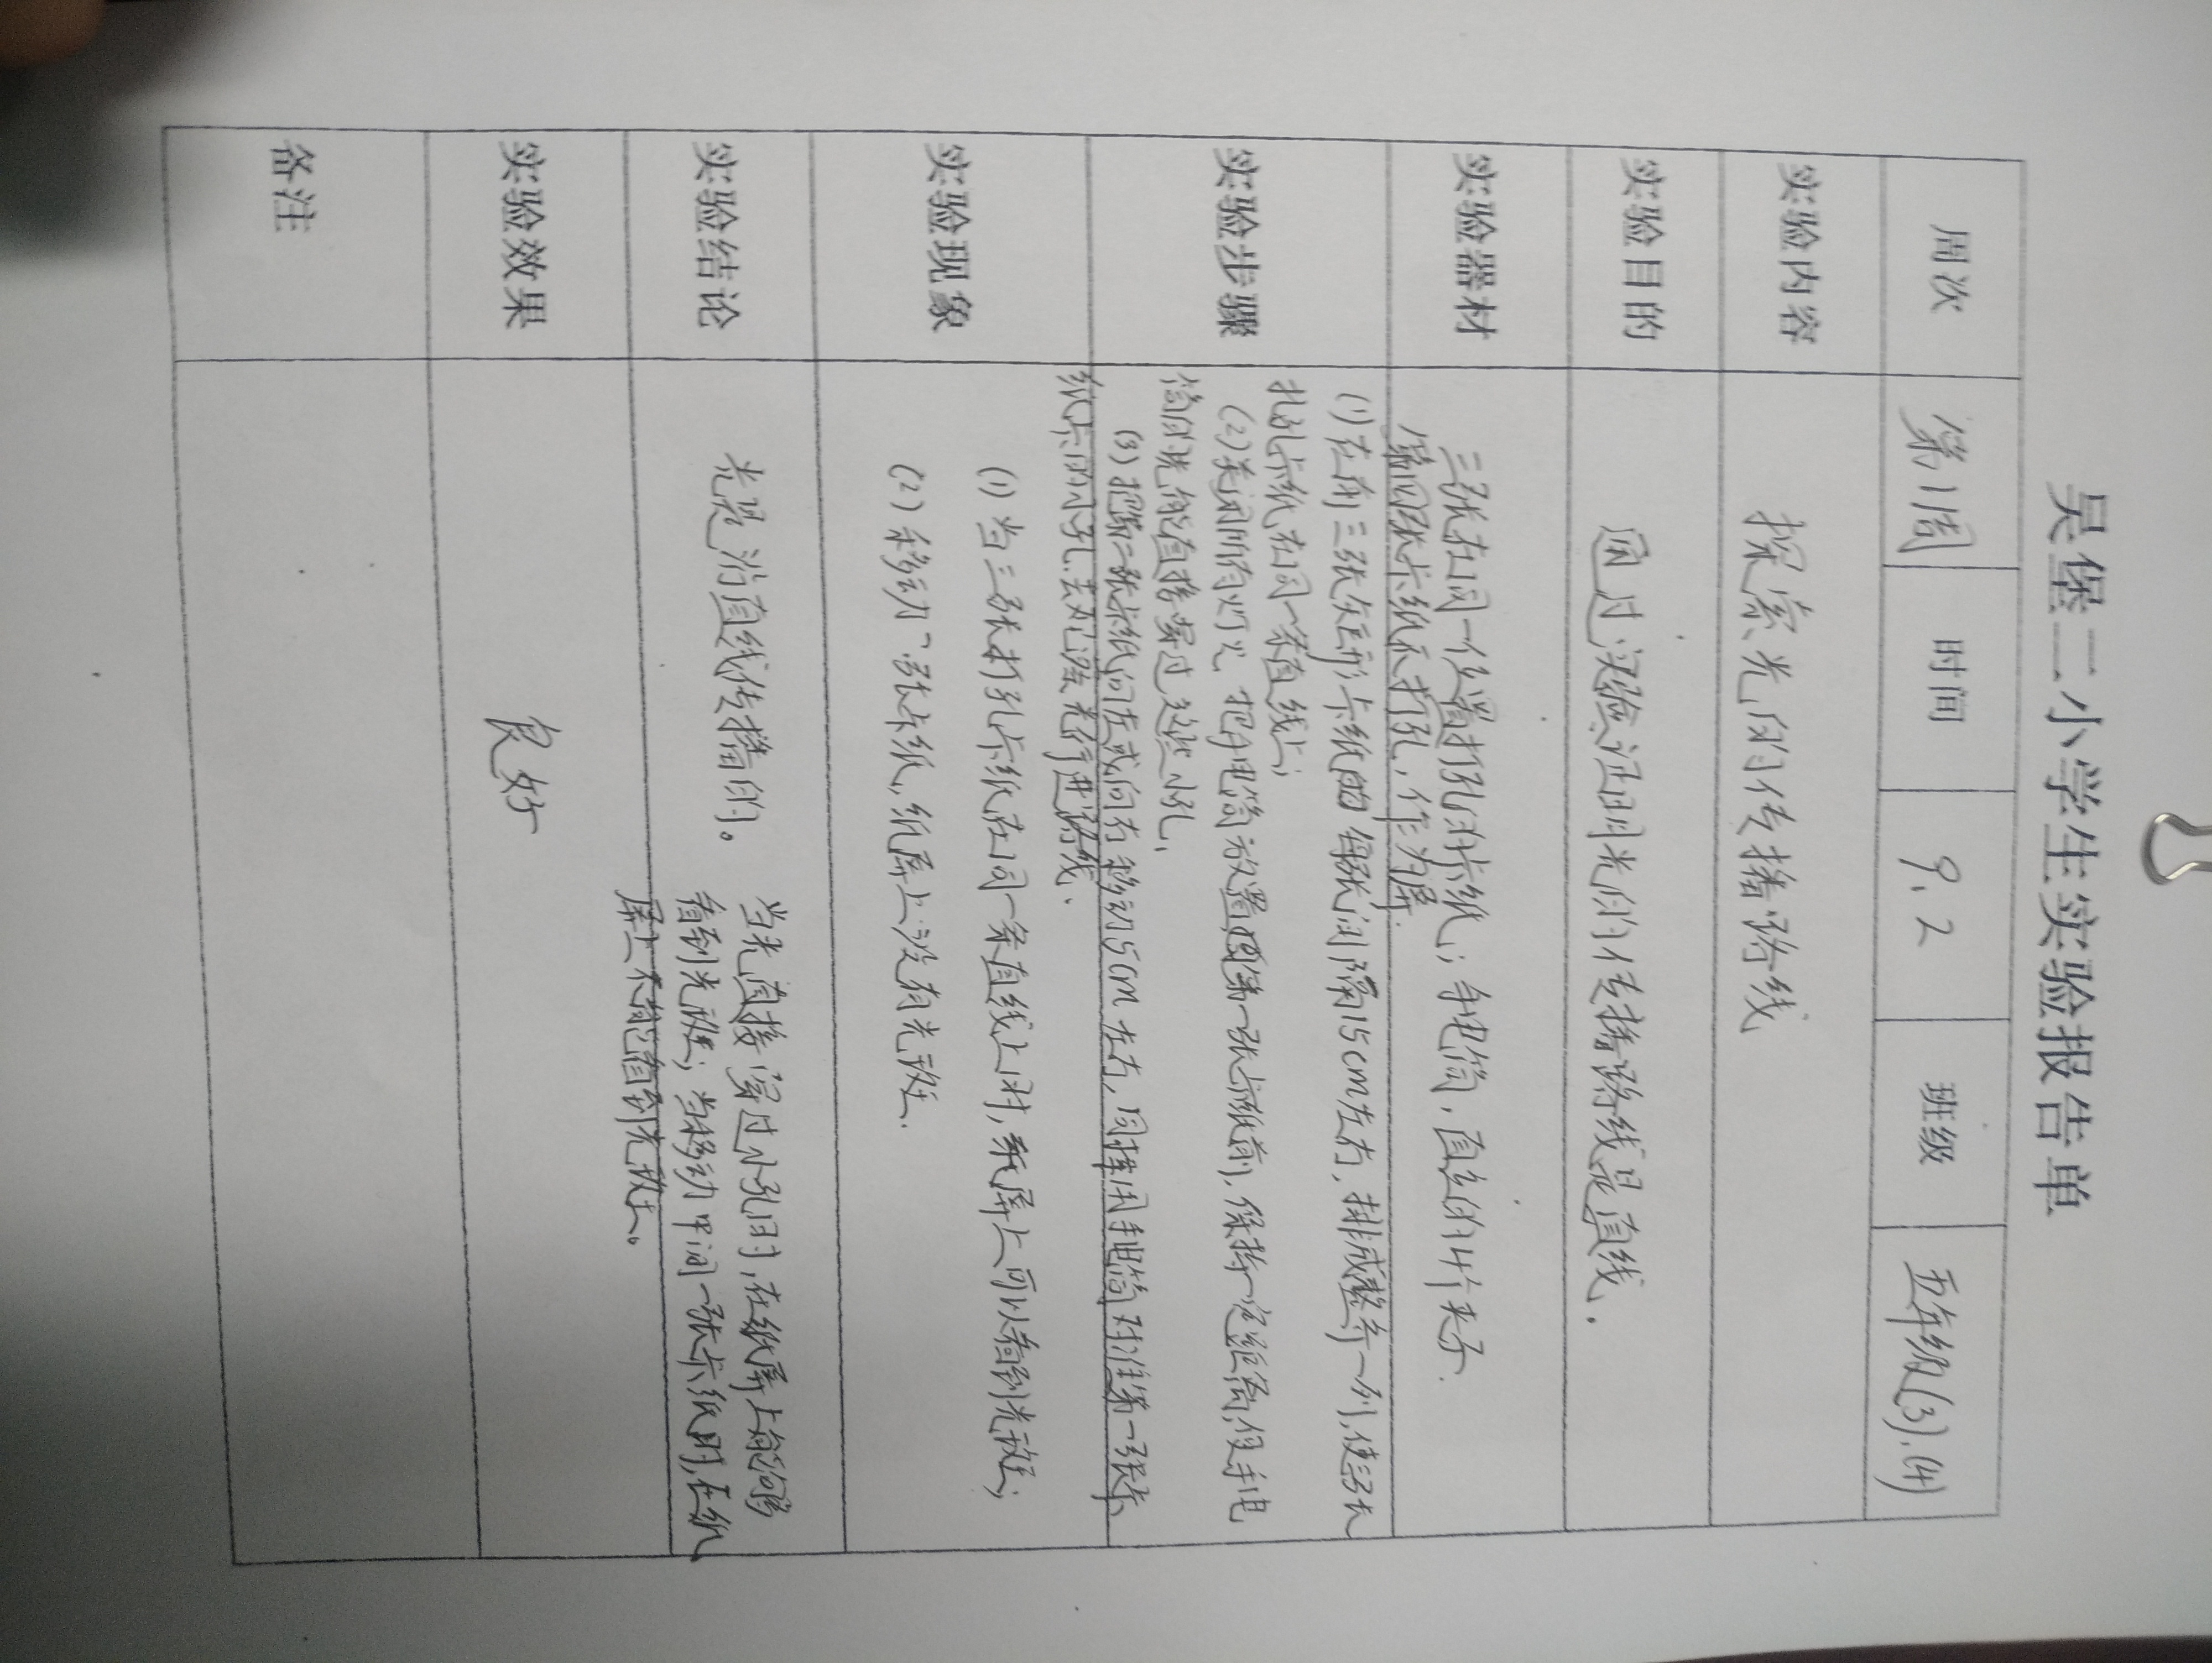 吴堡二小学生实验报告单
周次 第1周 时间 9.2 班级 五年级(3).(4)
实验内容 探索光的传播路线
实验目的 通过实验证明光的传播路线是直线.
实验器材 三张在同一位置打孔的卡纸; 手电筒, 直立的4个夹子.
第四张卡纸不打孔, 作为屏.
实验步骤 (1) 在前三张矩形卡纸的 每张间隔15cm左右, 排成整齐一列, 使三张
扎孔卡纸在同一条直线上;
(2) 关闭所有灯火, 把手电筒放置在第一张卡纸前, 保持一定距离, 使手电
筒的光能直接穿过这些小孔,
(3) 把第二张卡纸向左或向右移动5cm左右, 同样用手电筒对准第一张卡
纸卡的小孔.去观察光行进路线、
实验现象 (1) 当三张打孔卡纸在同一条直线上时, 纸屏上可以看到光斑;
(2) 移动一张卡纸, 纸屏上没有光斑.
实验结论 光是沿直线传播的。
当光直接穿过小孔时, 在纸屏上能够
看到光斑; 当移动中间一张卡纸时, 在纸
屏上不能看到光斑。
实验效果 良好
备注